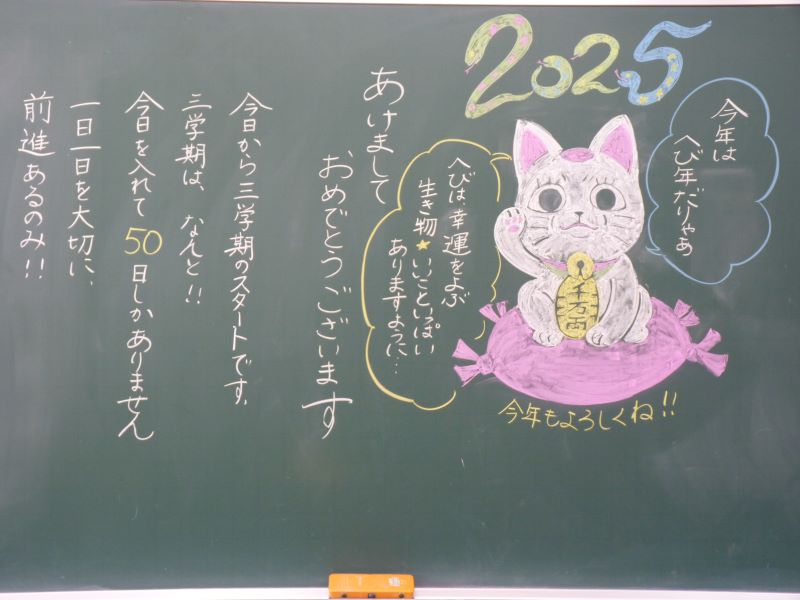 2025
今年は
へび年だりゃあ
へびは、幸運をよぶ
生き物★いいこといっぱい
ありますように…
千万両
今年もよろしくね!!
あけまして
おめでとうございます
今日から三学期のスタートです。
三学期は、なんと!!
今日を入れて50日しかありません
一日一日を大切に、
前進あるのみ!!